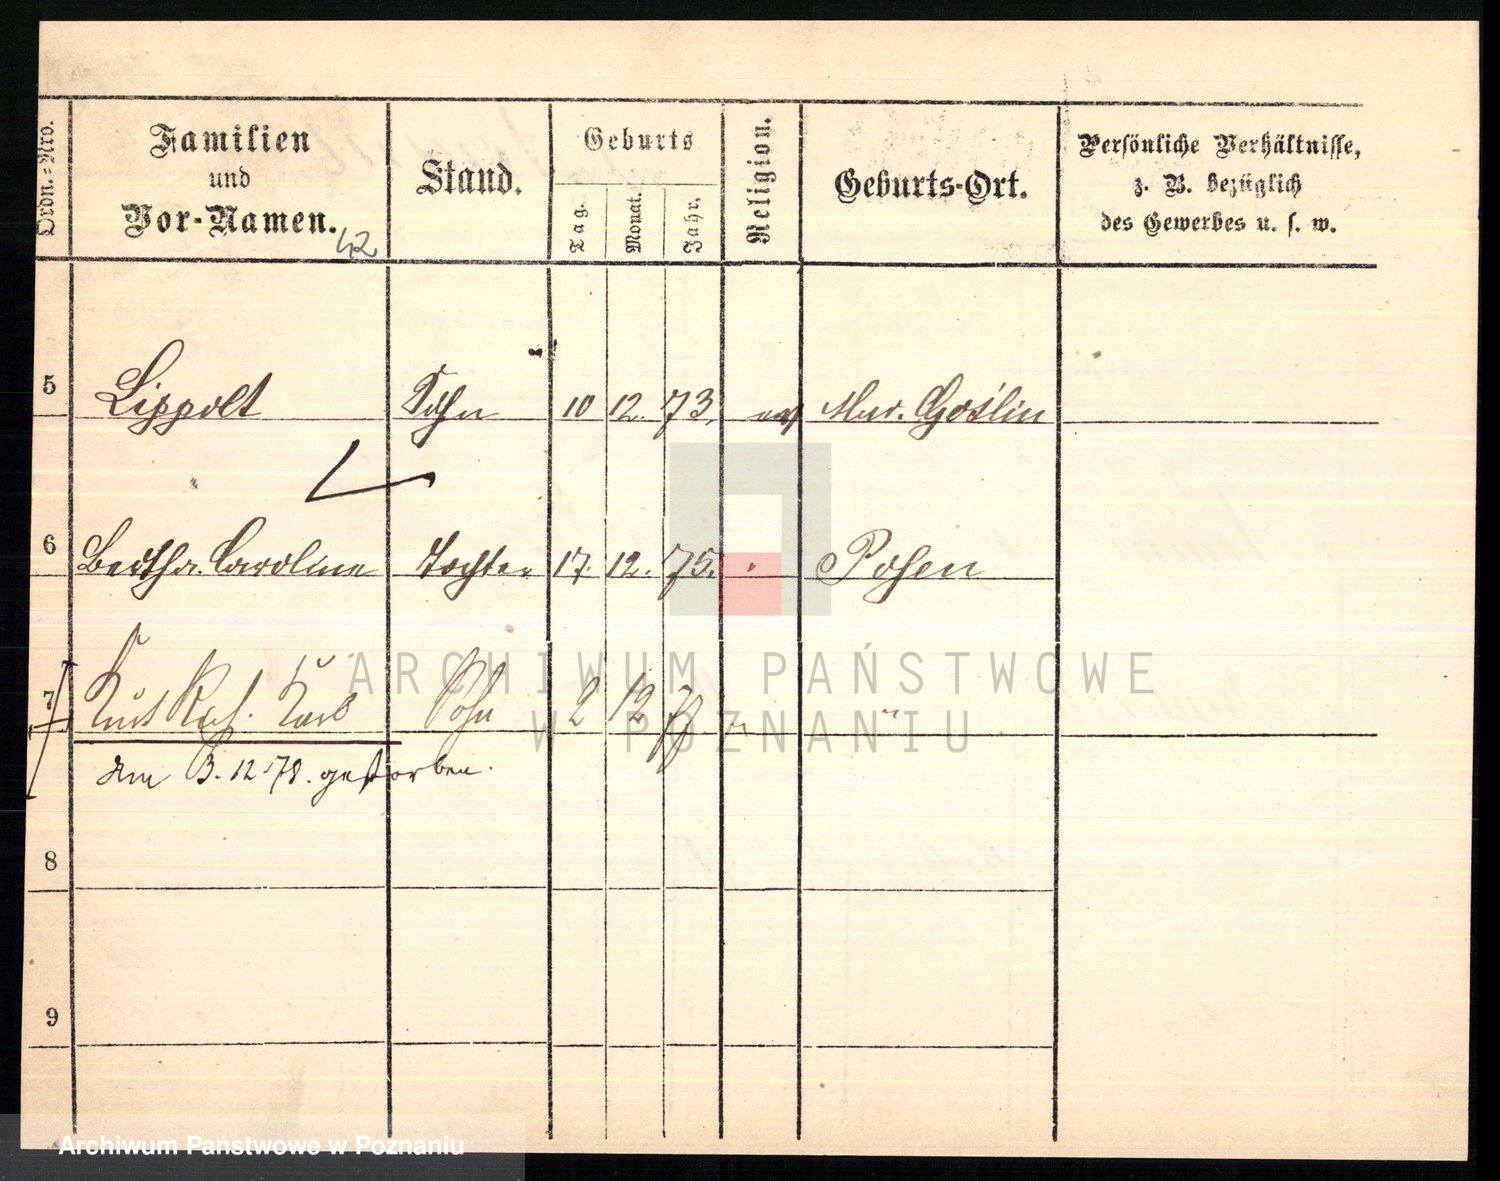 Ordn.-Nro.
Familien
und
Vor-Namen.
42.
Stand.
Geburts
Tag.
Monat.
Jahr.
Religion.
Geburts-Ort.
Persönliche Verhältnisse,
z. B. bezüglich
des Gewerbes u. s. w.
5 Lippolt Sohn 10 12. 73. Mur. Goslin
6 Bertha Caroline Tochter 17. 12. 75. " Posen
7 Kurt Sohn 2 12 77 " "
Am 3. 12. 78. gestorben.
8
9
ARCHIWUM PAŃSTWOWE
W POZNANIU
Archiwum Państwowe w Poznaniu